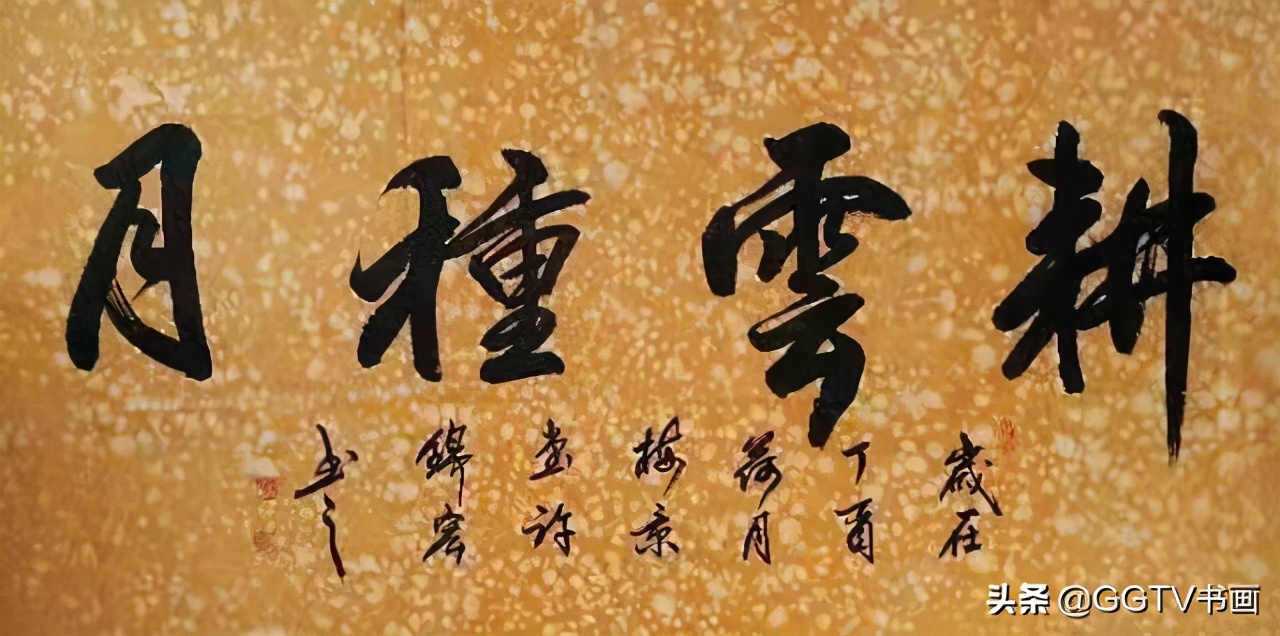 耕雲種月
歲在
丁酉
荷月
梅景
堂許
錦
书之
头条 @GGTV书画